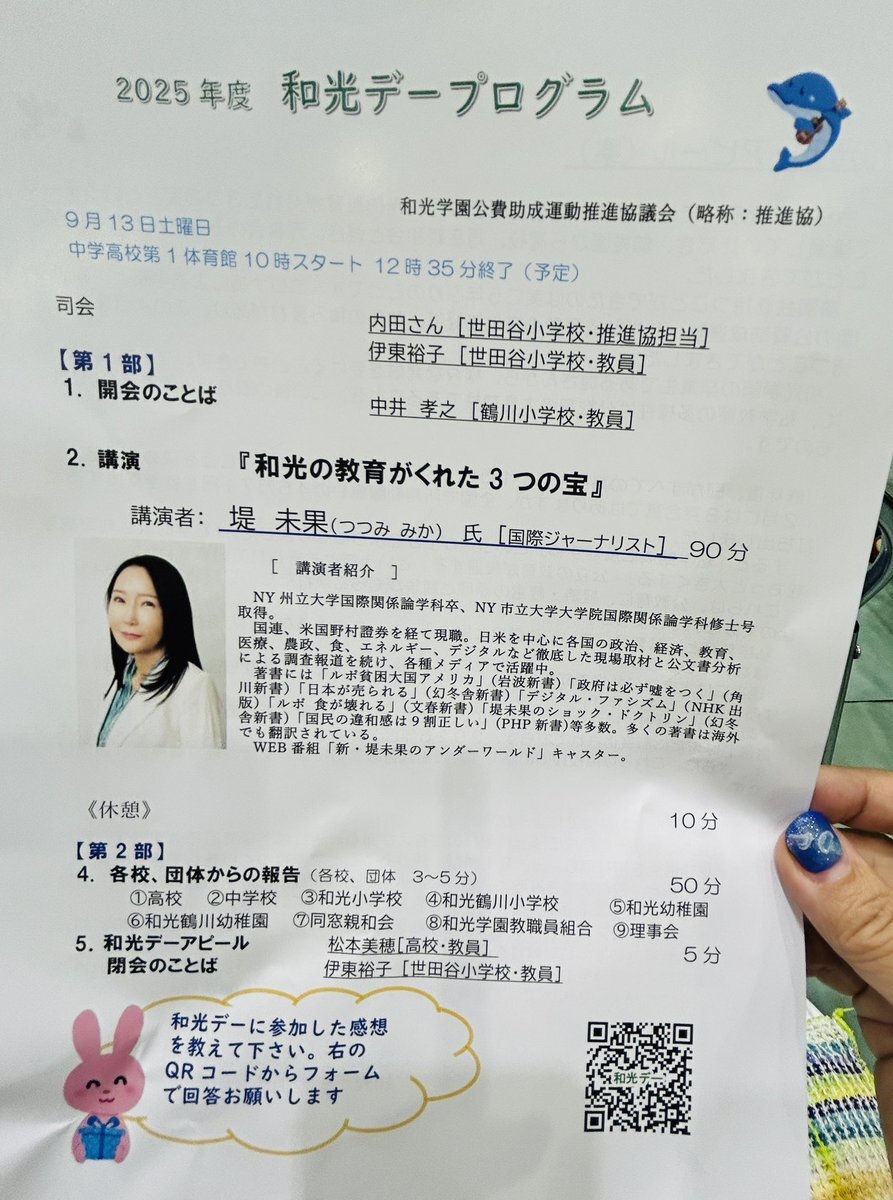 2025年度 和光デープログラム
和光学園公費助成運動推進協議会（略称：推進協）
9月13日土曜日
中学高校第1体育館10時スタート 12時35分終了（予定）
司会
内田さん［世田谷小学校・推進協担当］
伊東裕子［世田谷小学校・教員］
【第1部】
1. 開会のことば
中井 孝之［鶴川小学校・教員］
2. 講演 『和光の教育がくれた3つの宝』
講演者： 堤 未果(つつみ みか) 氏［国際ジャーナリスト］ 90分
［ 講演者紹介 ］
NY州立大学国際関係論学科卒、NY市立大学大学院国際関係論学科修士号
取得。
国連、米国野村證券を経て現職。日米を中心に各国の政治、経済、教育、
医療、農政、食、エネルギー、デジタルなど徹底した現場取材と公文書分析
による調査報道を続け、各種メディアで活躍中。
著書には「ルポ貧困大国アメリカ」（岩波新書）「政府は必ず嘘をつく」（角
川新書）「日本が売られる」（幻冬舎新書）「デジタル・ファシズム」（NHK出
版）「ルポ 食が壊れる」（文春新書）「堤未果のショック・ドクトリン」（幻冬
舎新書）「国民の違和感は9割正しい」（PHP新書)等多数。多くの著書は海外
でも翻訳されている。
WEB番組「新・堤未果のアンダーワールド」キャスター。
《休憩》 10分
【第2部】
4. 各校、団体からの報告（各校、団体 3～5分） 50分
①高校 ②中学校 ③和光小学校 ④和光鶴川小学校 ⑤和光幼稚園
⑥和光鶴川幼稚園 ⑦同窓親和会 ⑧和光学園教職員組合 ⑨理事会
5. 和光デーアピール 松本美穂[高校・教員] 5分
閉会のことば 伊東裕子［世田谷小学校・教員］
和光デーに参加した感想
を教えて下さい。右の
QRコードからフォーム
で回答お願いします
和光デー